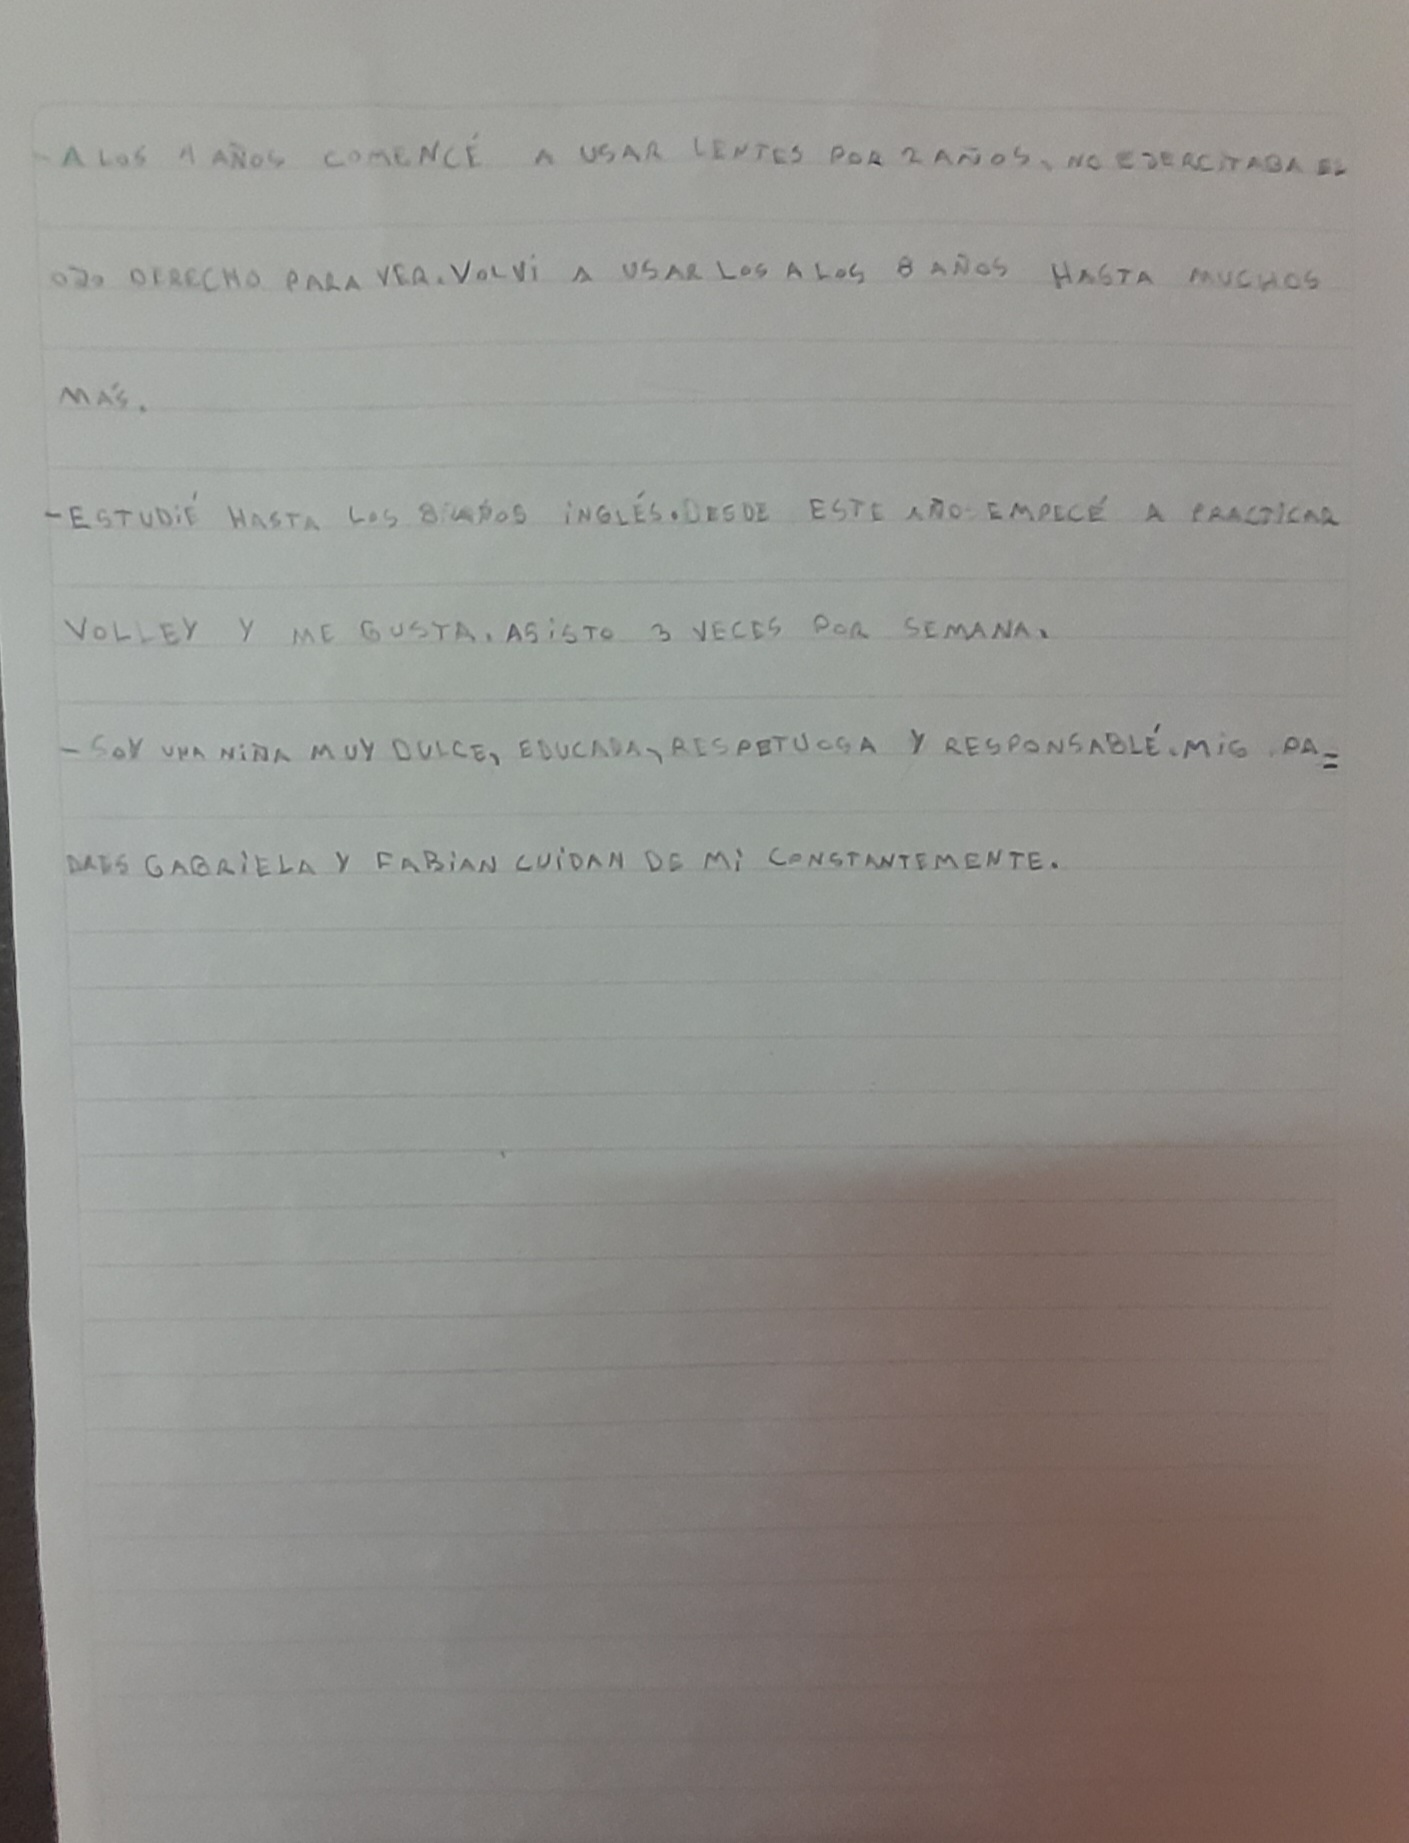 - A LOS 4 AÑOS COMENCÉ A USAR LENTES POR 2 AÑOS, NO EJERCITABA EL
OJO DERECHO PARA VER. VOLVI A USAR LOS A LOS 8 AÑOS HASTA MUCHOS
MÁS.
- ESTUDIÉ HASTA LOS 8 AÑOS INGLÉS. DESDE ESTE AÑO EMPECÉ A PRACTICAR
VOLLEY Y ME GUSTA. ASISTO 3 VECES POR SEMANA.
- SOY UNA NIÑA MUY DULCE, EDUCADA, RESPETUOSA Y RESPONSABLÉ. MIS PA=
DRES GABRIELA Y FABIAN CUIDAN DE MI CONSTANTEMENTE.